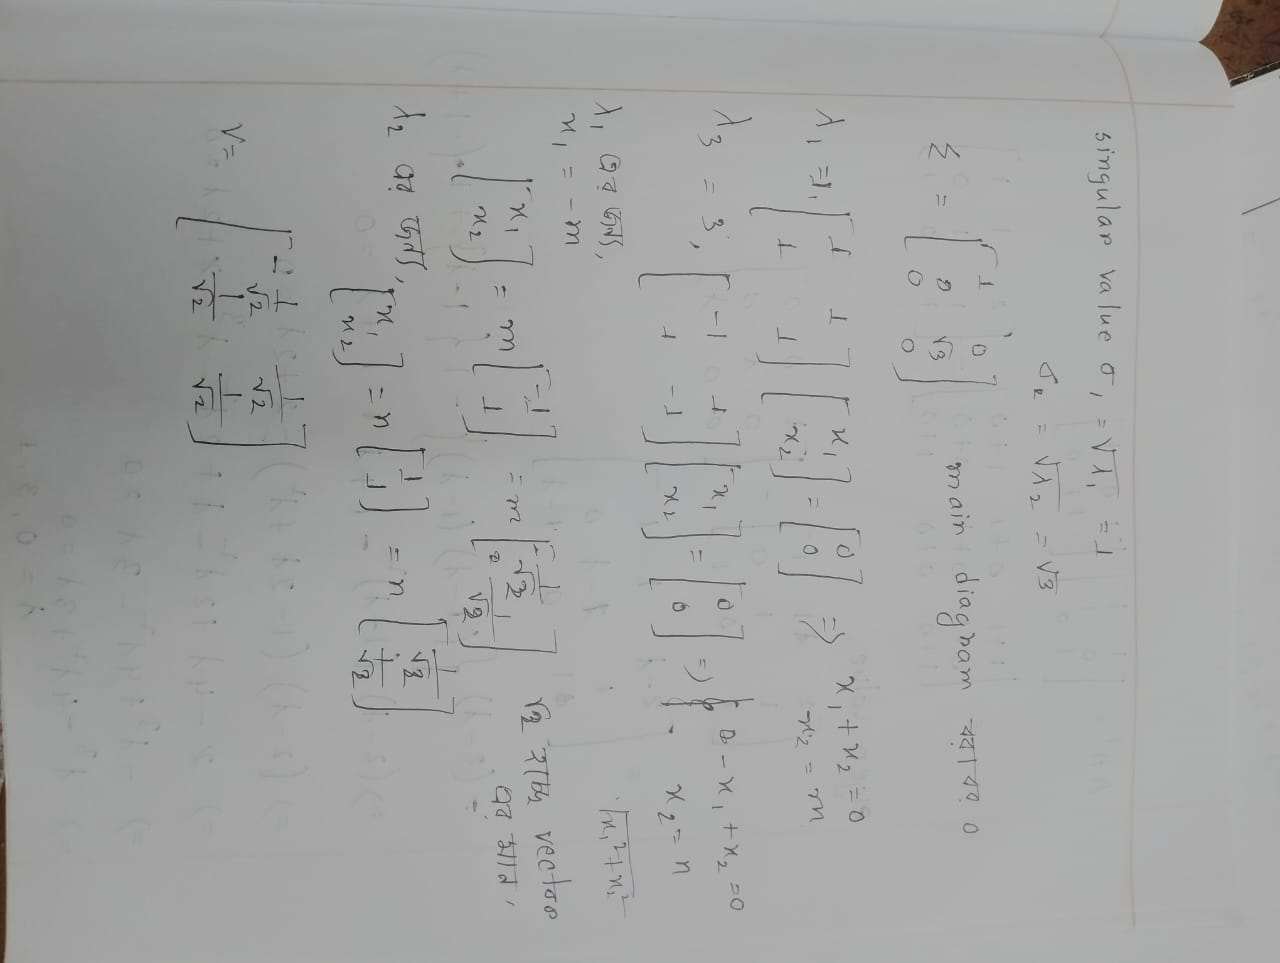 singular value σ₁ = √λ₁ = 1
σ₂ = √λ₂ = √3
Σ = [1 0; 0 √3; 0 0] main diagram
λ₁ = 1, [1 1; 1 1] [x₁; x₂] = [0; 0] ⇒ x₁ + x₂ = 0
x₂ = m
λ3 = 3, [-1 1; 1 -1] [x₁; x₂] = [0; 0] ⇒ - x₁ + x₂ = 0
x₂ = n
λ₁ এর জন্য,
x₁ = -m
√x₁² + x₂²
[x₁; x₂] = m [-1; 1] = m [-1/√2; 1/√2] √2 vector
এর মান,
λ₂ এর জন্য,
[x₁; x₂] = n [1; 1] = n [1/√2; 1/√2]
V = [-1/√2 1/√2; 1/√2 1/√2]